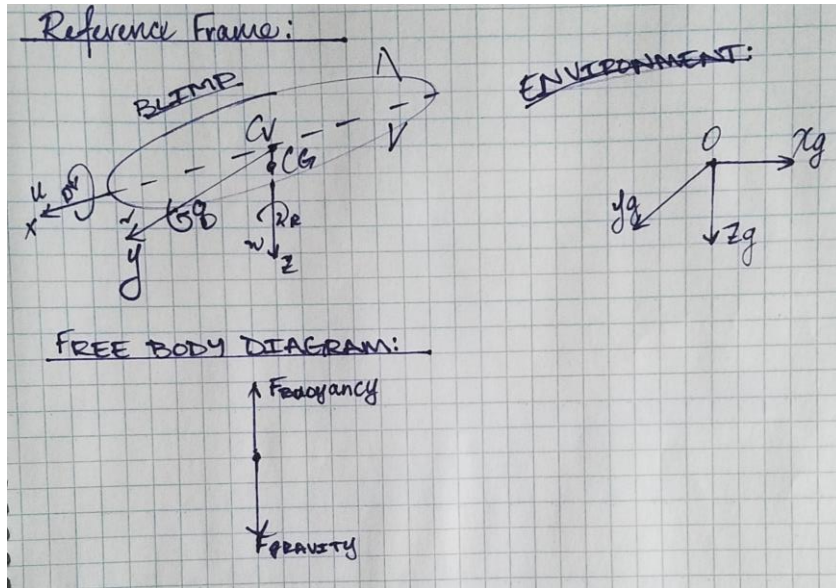 Reference Frame:
BLIMP
CV
CG
u
x
P
v
y
q
R
w
z
ENVIRONMENT:
O
Xg
Yg
Zg
FREE BODY DIAGRAM:
FBuoyancy
FGRAVITY